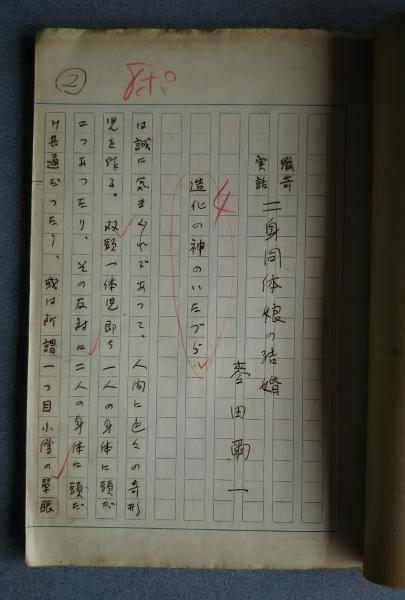 ②
8ポ
獵奇
実話
二身同体娘の結婚
田爾一
4
造化の神のいたづら
は誠に気まぐれであつて、人間に色々の奇形
児を作る。双頭一体児即ち一人の身体に頭が
二つあつたり、その反対に二人の身体に頭だ
け共通だつたり、或は所謂一つ目小僧の單眼